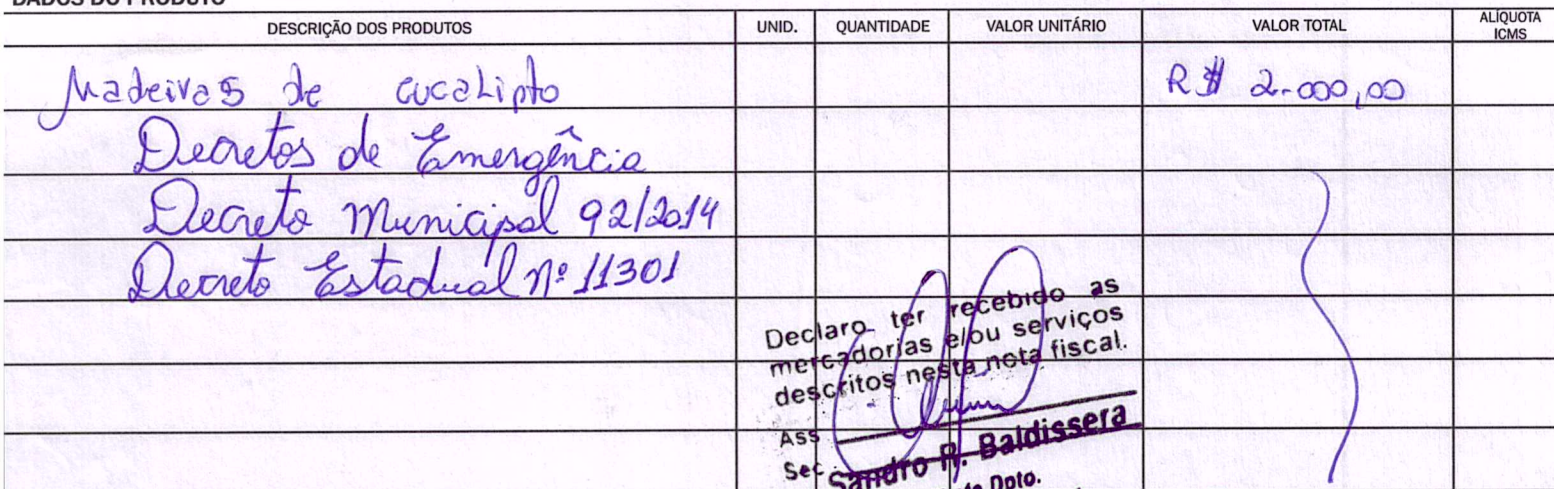 DADOS DO PRODUTO
DESCRIÇÃO DOS PRODUTOS UNID. QUANTIDADE VALOR UNITÁRIO VALOR TOTAL ALÍQUOTA ICMS
Madeiras de eucalipto R$ 2.000,00
Decretos de Emergência
Decreto Municipal 92/2014
Decreto Estadual nº 11301
Declaro ter recebido as
mercadorias e/ou serviços
descritos nesta nota fiscal.
Ass
Sec Sandro R. Baldissera
Dpto.